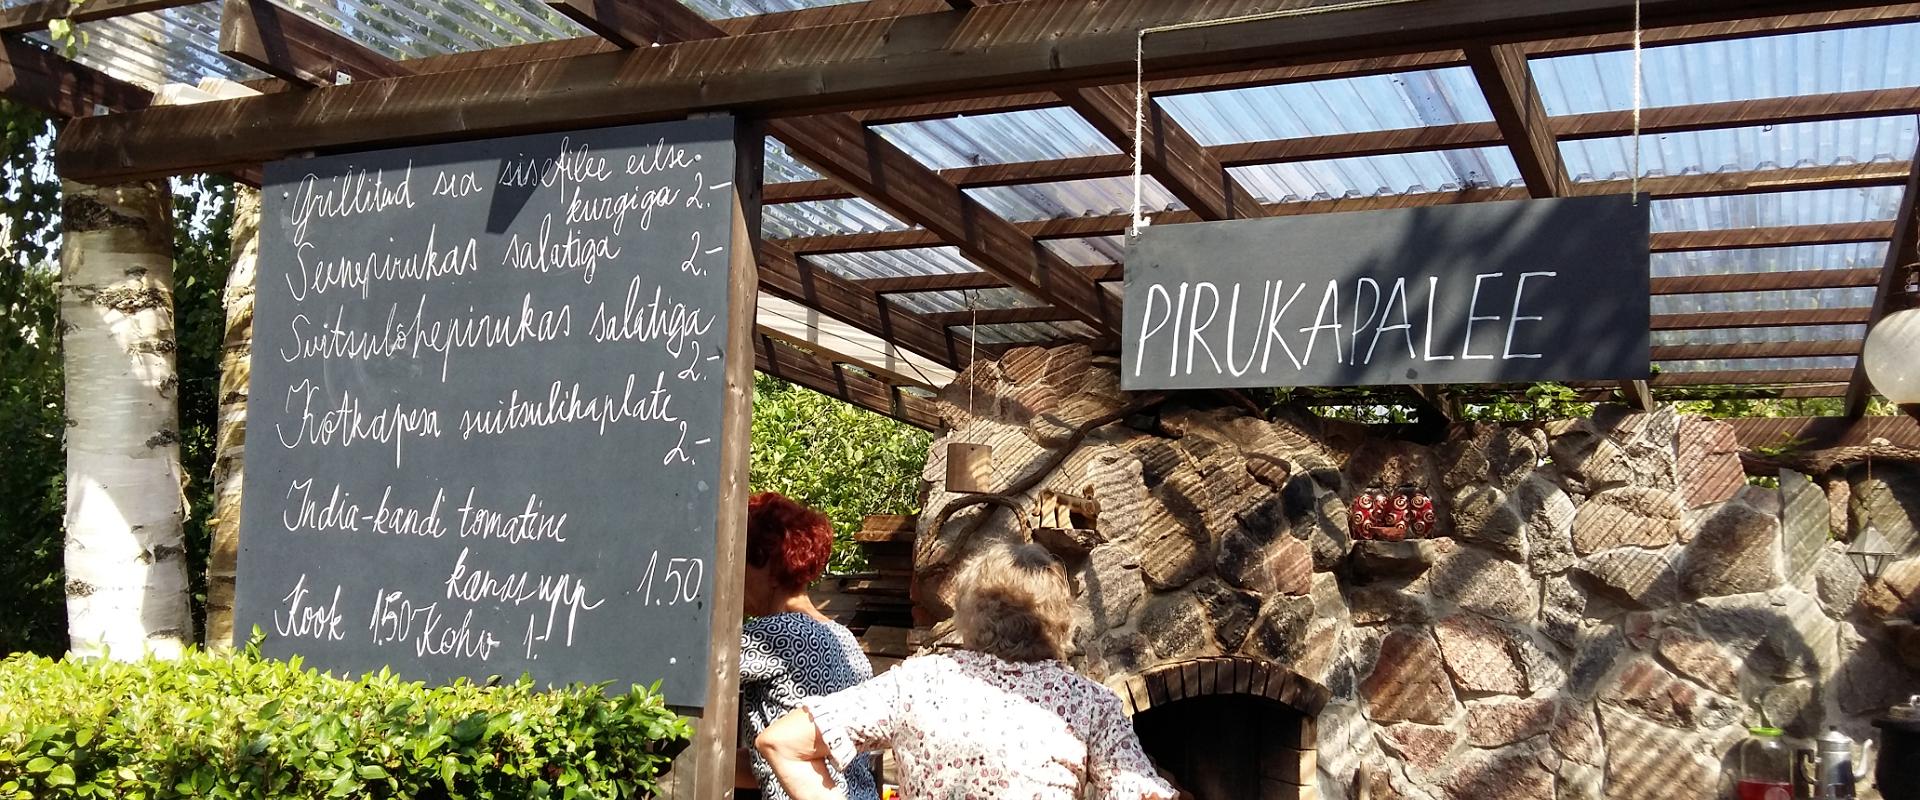 Grillitud sea sisefilee eilse
kurgiga 2.-
Seenepirukas salatiga 2.-
Suitsulõhepirukas salatiga
2.-
Kotkapesa suitsulihaplate
2.-
India-kandi tomatine
kanasupp 1.50
Kook 1.50 Kohv 1.-
PIRUKAPALEE